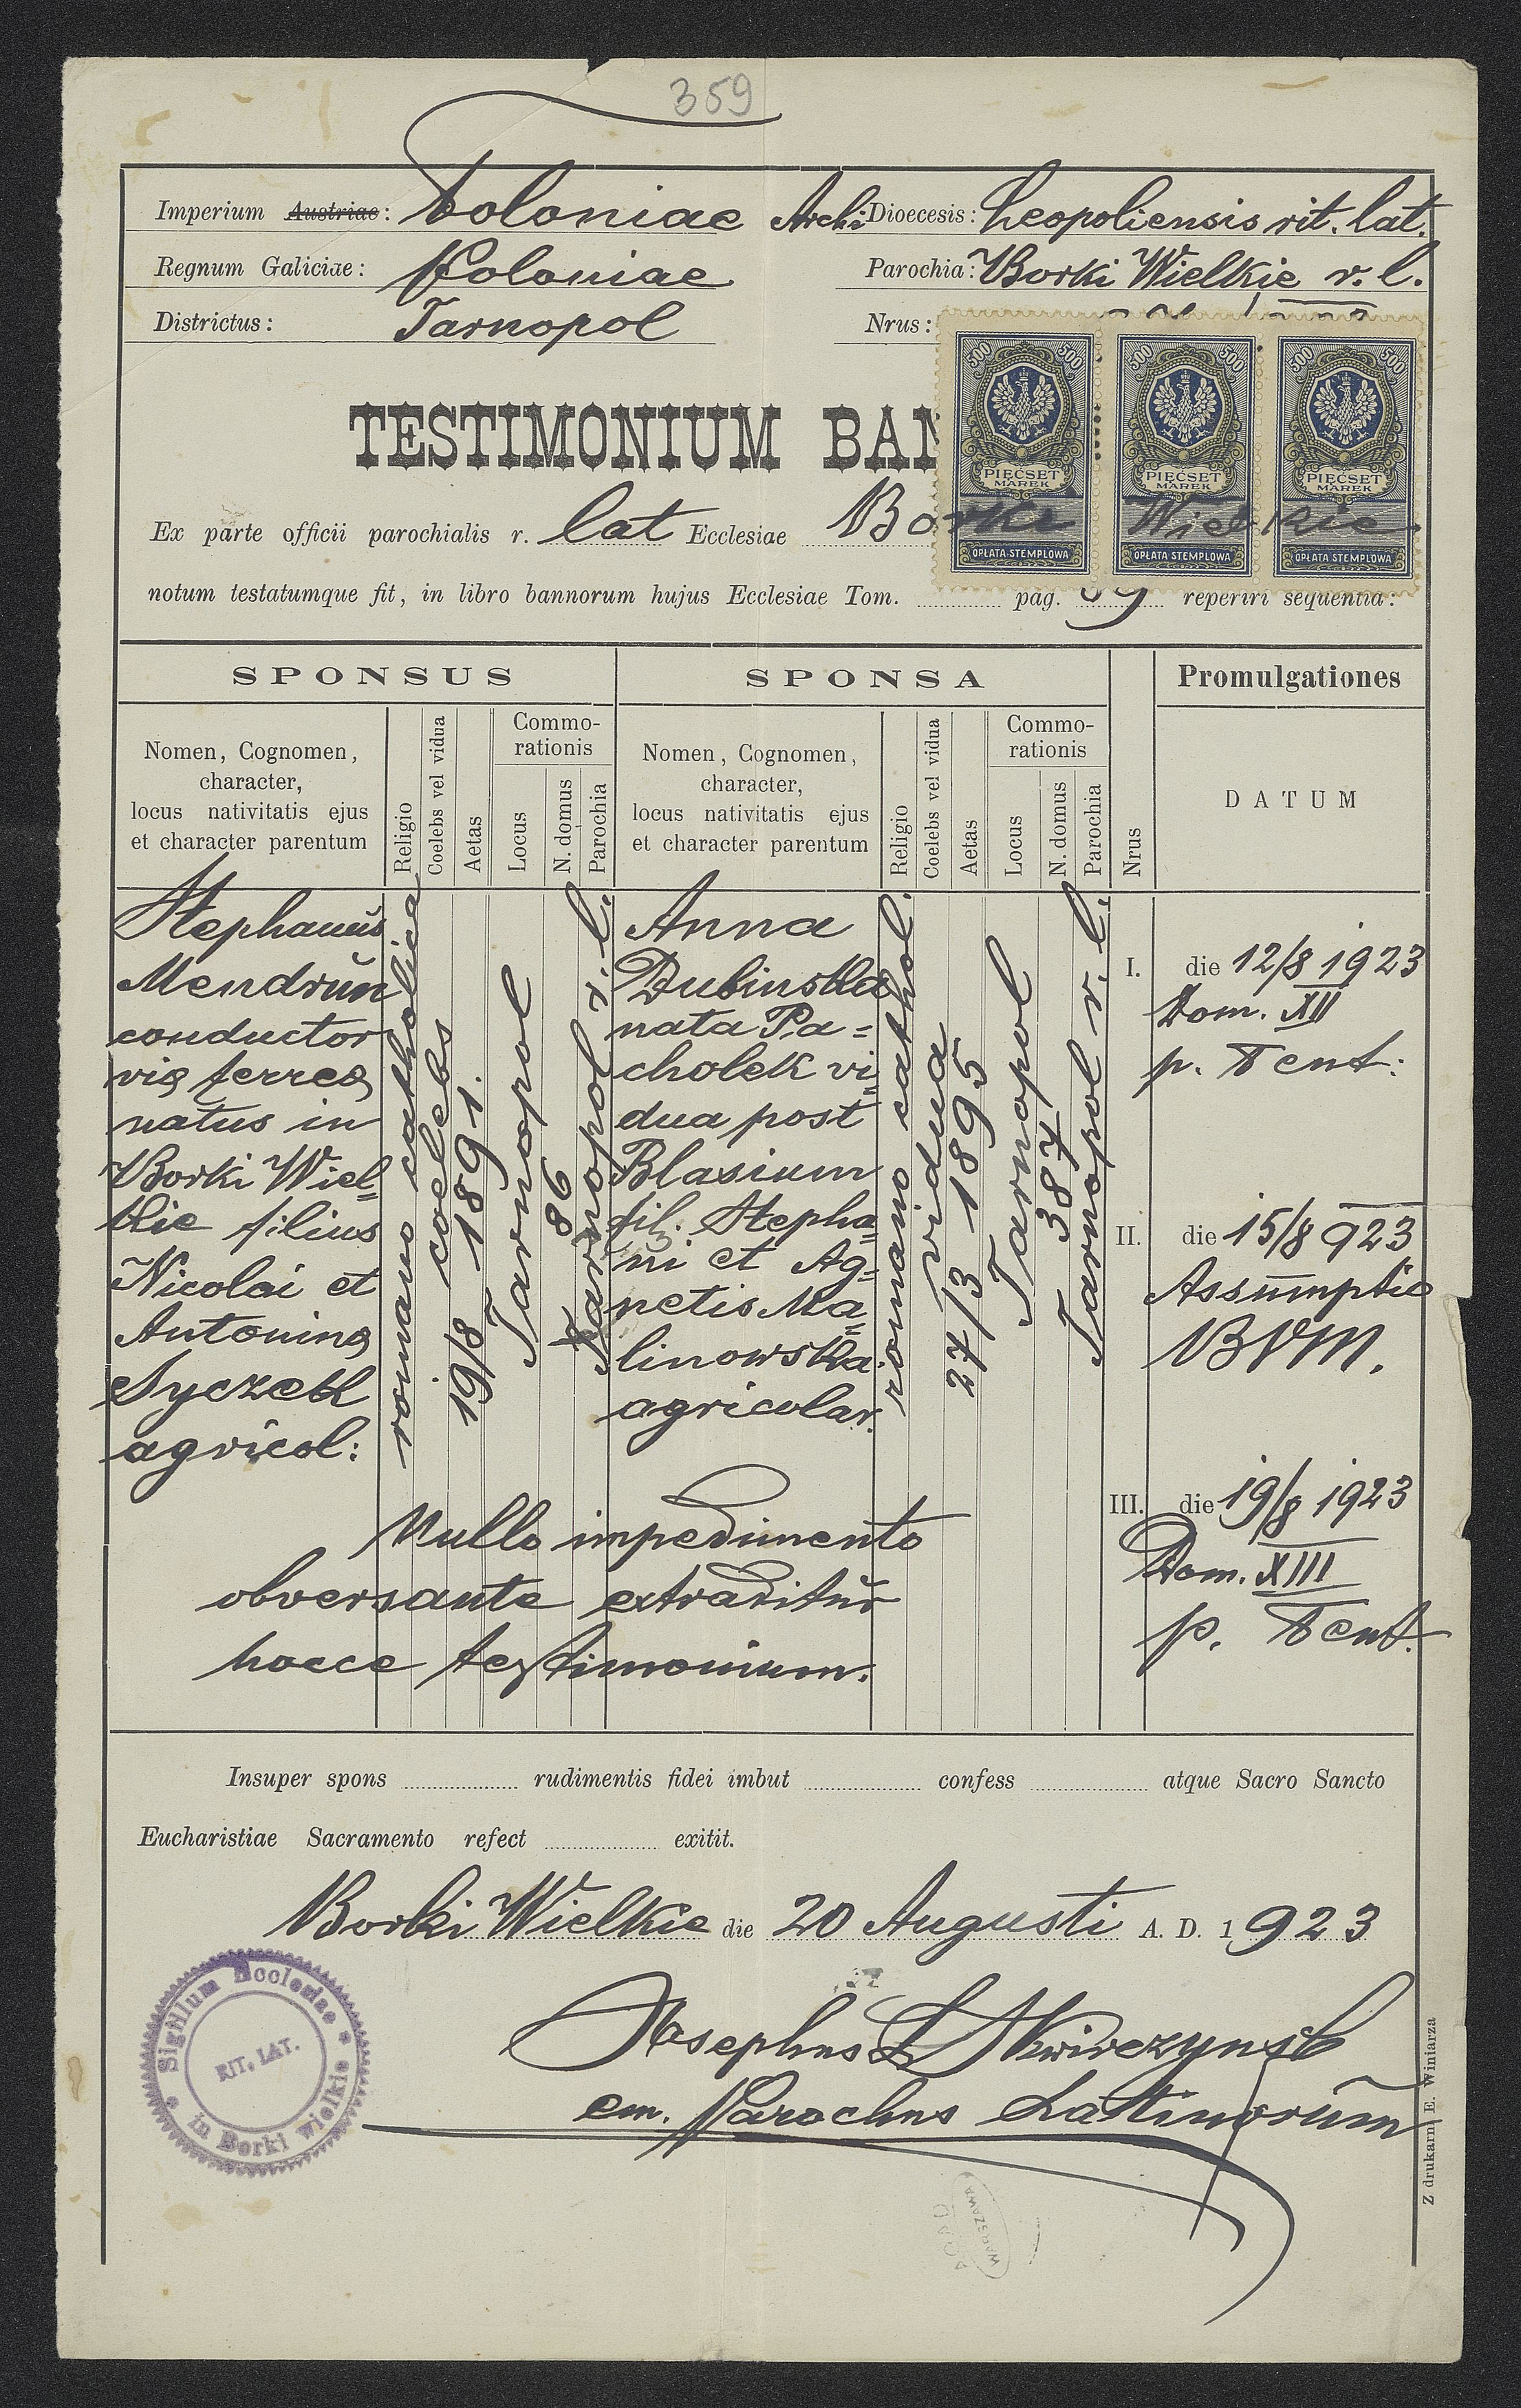 359
Imperium Austriae: Poloniae Archi Dioecesis: Leopoliensis rit. lat.
Regnum Galiciae: Poloniae Parochia: Borki Wielkie r. l.
Districtus: Tarnopol Nrus:
500 500 500 500
TESTIMONIUM BAN
PIĘĆSET MAREK PIĘĆSET MAREK PIĘĆSET MAREK
Ex parte officii parochialis r. lat Ecclesiae Borki Wielkie
OPŁATA STEMPLOWA OPŁATA STEMPLOWA OPŁATA STEMPLOWA
notum testatumque fit, in libro bannorum hujus Ecclesiae Tom. pag. reperiri sequentia:
SPONSUS SPONSA Promulgationes
Nomen, Cognomen,
character,
locus nativitatis ejus
et character parentum
Religio
Coelebs vel vidua
Aetas
Commo-
rationis
Locus
N. domus
Parochia
Nomen, Cognomen,
character,
locus nativitatis ejus
et character parentum
Religio
Coelebs vel vidua
Aetas
Commo-
rationis
Locus
N. domus
Parochia
Nrus
DATUM
Stephanus
Mendrun
conductor
vię ferreę
natus in
Borki Wiel=
kie filius
Nicolai et
Antoninę
Syczek
agricol:
romano catholica
coelebs
19/8 1891.
Tarnopol
86
Tarnopol r. l.
Anna
Dubinska
nata Pa=
cholek vi=
dua post
Blasium
fil. Stepha=
ni et Ag=
netis Ma=
linowska
agricolar.
romano cathol.
vidua
27/3 1895
Tarnopol
387
Tarnopol r. l.
I. die 12/8 1923
Dom. XII
p. Pent:
II. die 15/8 923
Assumptio
BVM.
III. die 19/8 1923
Dom. XIII
p. Pent.
Nullo impedimento
obversante extraditur
hocce testimonium.
Insuper spons rudimentis fidei imbut confess atque Sacro Sancto
Eucharistiae Sacramento refect exitit.
Borki Wielkie die 20 Augusti A. D. 1923
Sigillum Ecclesiae
RIT. LAT.
in Borki wielkie
Josephus
em. Parochus Lattinorum
Z drukarni E. Winiarza
AGAD
WARSZAWA